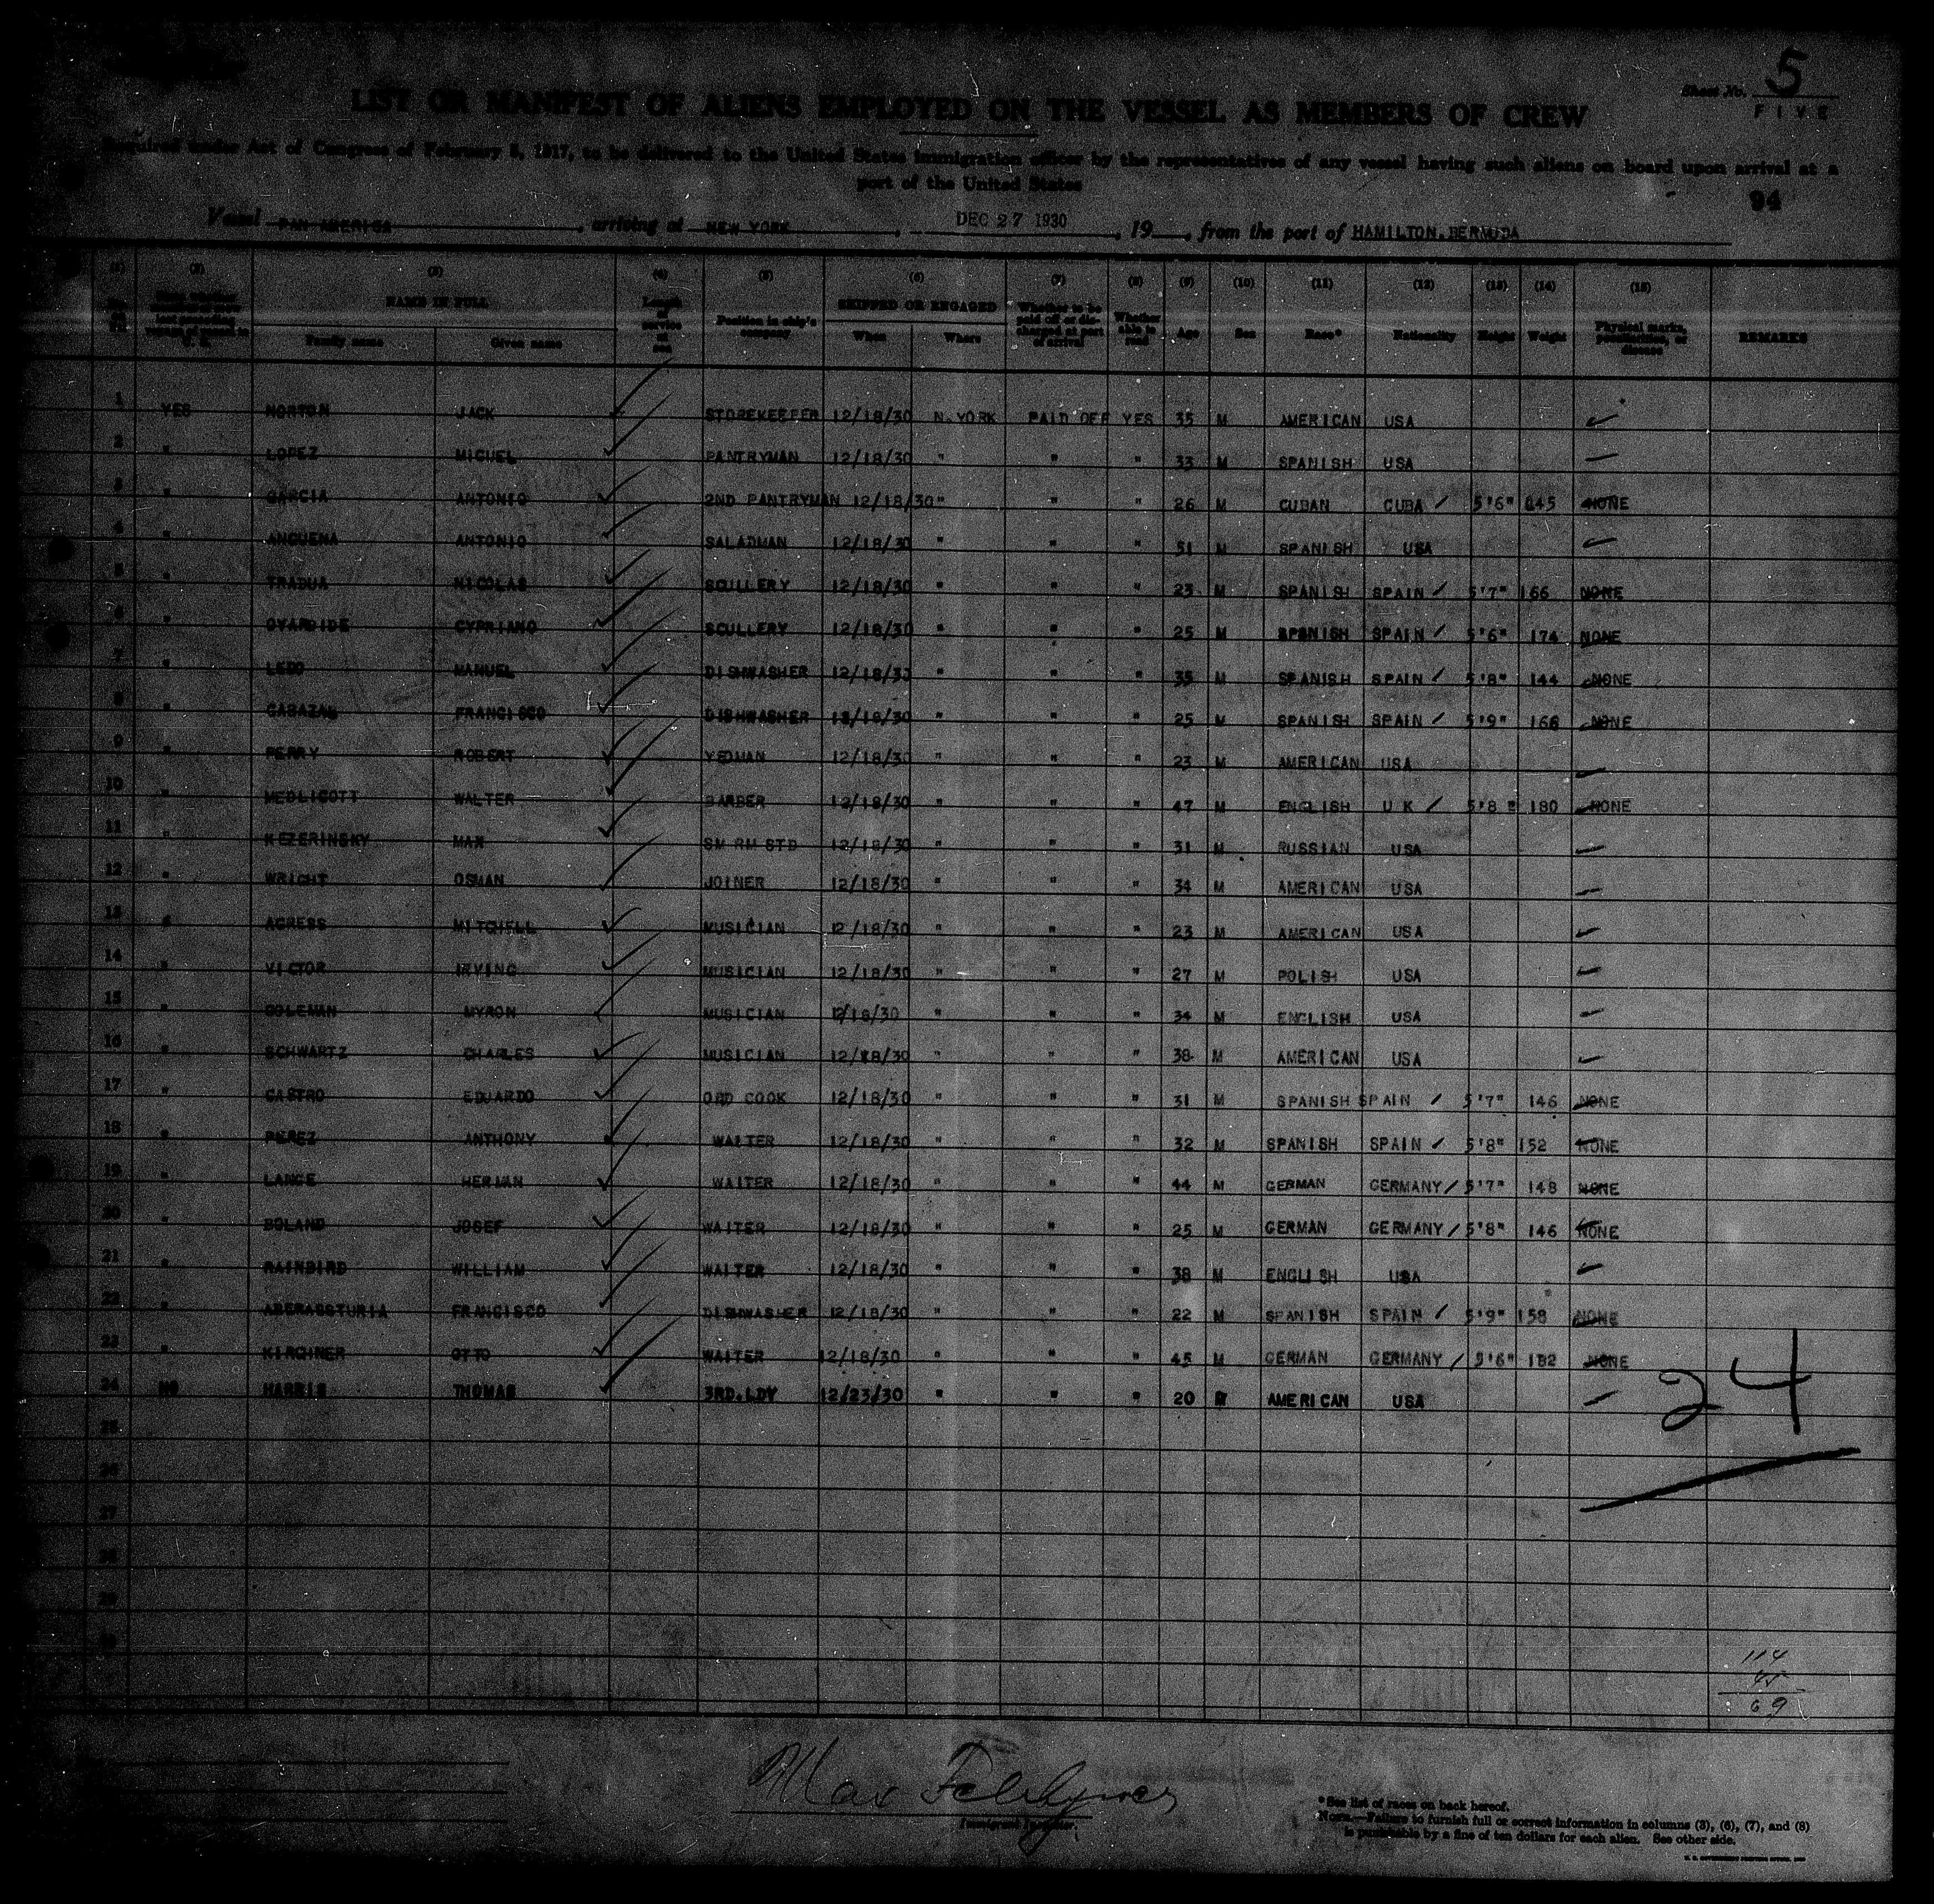 Sheet No. 5
FIVE
LIST OR MANIFEST OF ALIENS EMPLOYED ON THE VESSEL AS MEMBERS OF CREW
Required under Act of Congress of February 5, 1917, to be delivered to the United States immigration officer by the representatives of any vessel having such aliens on board upon arrival at a
port of the United States
94
Vessel PAN AMERICA, arriving at NEW YORK, DEC 27 1930, 19, from the port of HAMILTON, BERMUDA
(1) (2) (3) (4) (5) (6) (7) (8) (9) (10) (11) (12) (13) (14) (15)
NAME IN FULL Family name Given name Length of service at sea Position in ship's company SHIPPED OR ENGAGED When Where Whether to be paid off or discharged at port of arrival Whether able to read Age Sex Race* Nationality Height Weight Physical marks, peculiarities, or disease REMARKS
1 YES NORTON JACK STOREKEEPER 12/18/30 N.YORK PAID OFF YES 35 M AMERICAN USA
2 " LOPEZ MIGUEL PANTRYMAN 12/18/30 " " " 33 M SPANISH USA
3 " GARCIA ANTONIO 2ND PANTRYMAN 12/18/30 " " " 26 M CUBAN CUBA 5'6" 145 NONE
4 " ANGUENA ANTONIO SALADMAN 12/18/30 " " " 31 M SPANISH USA
5 " TRADUA NICOLAS SCULLERY 12/18/30 " " " 23 M SPANISH SPAIN 5'7" 166 NONE
6 " OYARBIDE CYPRIANO SCULLERY 12/18/30 " " " 25 M SPANISH SPAIN 5'6" 174 NONE
7 " LEDO MANUEL DISHWASHER 12/18/30 " " " 35 M SPANISH SPAIN 5'8" 144 NONE
8 " CABAZAN FRANCISCO DISHWASHER 12/18/30 " " " 25 M SPANISH SPAIN 5'9" 166 NONE
9 " PERRY ROBERT YEOMAN 12/18/30 " " " 23 M AMERICAN USA
10 " MEDLICOTT WALTER BARBER 12/18/30 " " " 47 M ENGLISH U K 5'8" 180 NONE
11 " KEZERINSKY MAX SM RM STD 12/18/30 " " " 31 M RUSSIAN USA
12 " WRIGHT OSMAN JOINER 12/18/30 " " " 34 M AMERICAN USA
13 " AGRESS MITCHELL MUSICIAN 12/18/30 " " " 23 M AMERICAN USA
14 " VICTOR IRVING MUSICIAN 12/18/30 " " " 27 M POLISH USA
15 " COLEMAN MYRON MUSICIAN 12/18/30 " " " 34 M ENGLISH USA
16 " SCHWARTZ CHARLES MUSICIAN 12/18/30 " " " 38 M AMERICAN USA
17 " CASTRO EDUARDO ORD COOK 12/18/30 " " " 31 M SPANISH SPAIN 5'7" 146 NONE
18 " PEREZ ANTHONY WAITER 12/18/30 " " " 32 M SPANISH SPAIN 5'8" 152 NONE
19 " LANGE HERMAN WAITER 12/18/30 " " " 44 M GERMAN GERMANY 5'7" 148 NONE
20 " BOLAND JOSEF WAITER 12/18/30 " " " 25 M GERMAN GERMANY 5'8" 146 NONE
21 " RAINBIRD WILLIAM WAITER 12/18/30 " " " 38 M ENGLISH USA
22 " ABERASSTURIA FRANCISCO DISHWASHER 12/18/30 " " " 22 M SPANISH SPAIN 5'9" 158 NONE
23 " KIRCHNER OTTO WAITER 12/18/30 " " " 45 M GERMAN GERMANY 5'6" 182 NONE
24 NO HARRIS THOMAS 3RD.LDY 12/23/30 " " " 20 M AMERICAN USA
24
25
26
27
28
29
30
114
45
69
Max
Immigrant Inspector.
*See list of races on back hereof.
NOTE.—Failure to furnish full or correct information in columns (3), (6), (7), and (8)
is punishable by a fine of ten dollars for each alien. See other side.